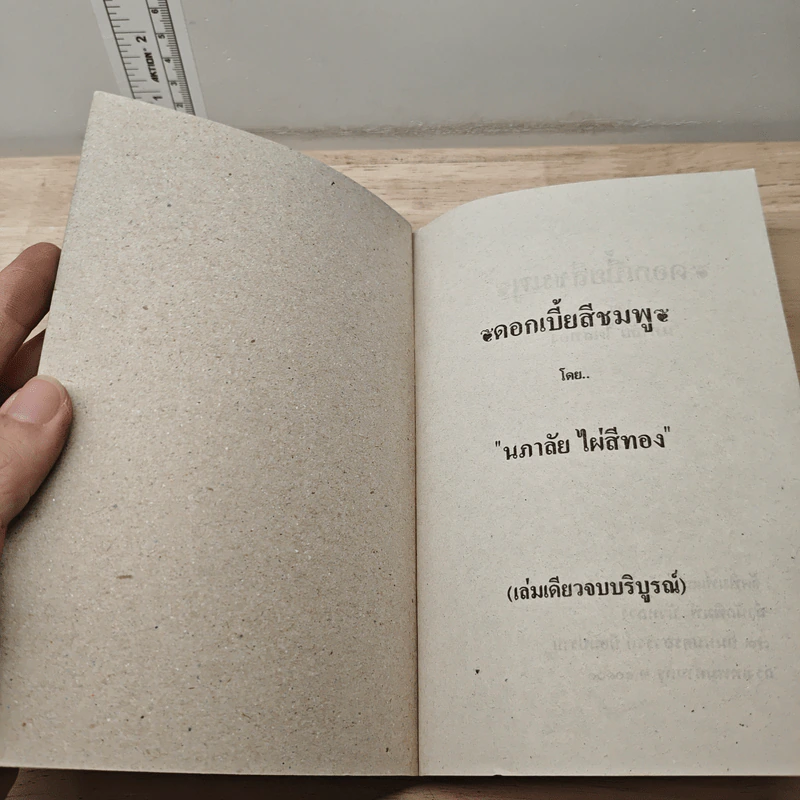 AKTION
2
1
ดอกเบี้ยสีชมพู
โดย..
"นภาลัย ไผ่สีทอง"
(เล่มเดียวจบบริบูรณ์)